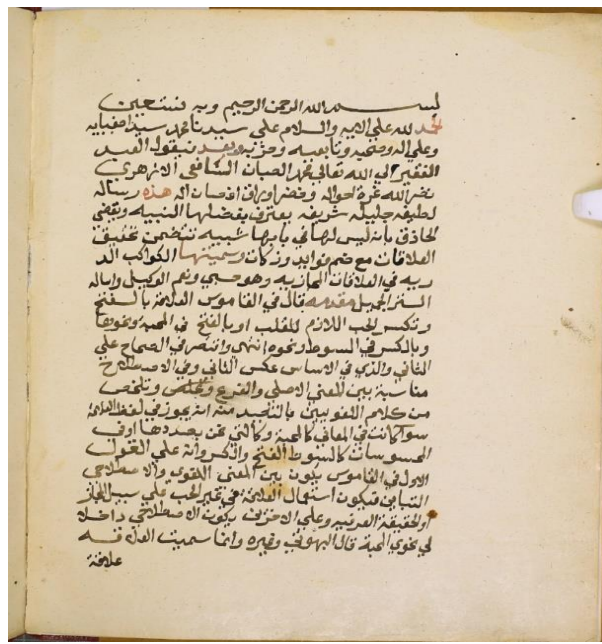 بسم الله الرحمن الرحيم وبه نستعين
الحمد لله علي الايه والسلام علي سيدنا محمد سيد اصفيايه
وعلي اله وصحبه وتابعيه وحزبه وبعد فيقول العبد
الفقير الي الله تعالي محمد الصبان الشافعي الازهري
الله غرة احواله اوراق هذه رسالة
لطيفه جليله شريفه يعترف بفضلها النبيه ويقضي
الحاذق بانه ليس لها في بابها شبيه تتضمن تحقيق
العلاقات مع ضم فوايد وسميتها الكواكب الد
ريه في العلاقات المجازيه وهو حسبي ونعم الوكيل واساله
الستر الجميل مقدمه قال في القاموس العلاقة بالفتح
وتكسر الحب اللازم للقلب او بالفتح في المحبة ونحوها
وبالكسر في السوط ونحوه انتهي واقتصر في الصحاح علي
الثاني والذي في الاساس عكس الثاني وفي الاصطلاح
مناسبة بين المعني الاصلي والفرع وتلخص
من كلام اللغويين منه انه يجوز في لفظ العلاقة
سوا كانت في المعاني كالمحبة وكالتي نحن بصددها او في
المحسوسات كالسوط الفتح والكسر وانه علي القول
الاول في القاموس يكون بين المعني اللغوي والاصطلاحي
التباين فيكون استعمال العلاقة في غير الحب علي سبيل المجاز
او الحقيقة العرفيه وعلي الاخرين يكون الاصطلاحي داخلا
في نحو المحبة قال وغيره وانما سميت العلاقه
علاقة